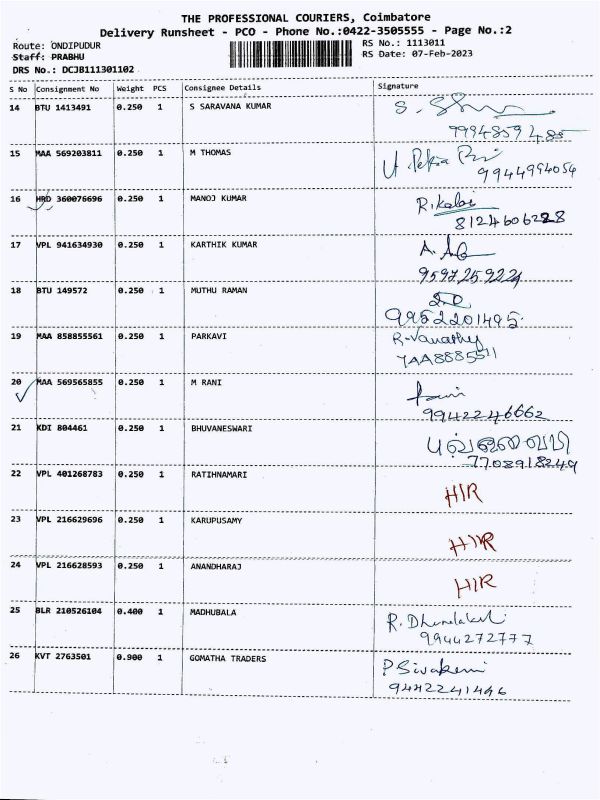 THE PROFESSIONAL COURIERS, Coimbatore
Delivery Runsheet - PCO - Phone No.:0422-3505555 - Page No.:2
Route: ONDIPUDUR RS No.: 1113011
Staff: PRABHU RS Date: 07-Feb-2023
DRS No.: DCJB111301102
S No Consignment No Weight PCS Consignee Details Signature
14 BTU 1413491 0.250 1 S SARAVANA KUMAR
15 MAA 569203811 0.250 1 M THOMAS
9944994054
16 HRD 360076696 0.250 1 MANOJ KUMAR R.Kalai
17 VPL 941634930 0.250 1 KARTHIK KUMAR
9597259224
18 BTU 149572 0.250 1 MUTHU RAMAN
9952201495
19 MAA 858855561 0.250 1 PARKAVI R.Vanathy
20 MAA 569565855 0.250 1 M RANI
9942246662
21 KDI 804461 0.250 1 BHUVANESWARI
7708918249
22 VPL 401268783 0.250 1 RATIHNAMARI HIR
23 VPL 216629696 0.250 1 KARUPUSAMY HIR
24 VPL 216628593 0.250 1 ANANDHARAJ HIR
25 BLR 210526104 0.400 1 MADHUBALA
9944272777
26 KVT 2763501 0.900 1 GOMATHA TRADERS P Sivakami
9442241496